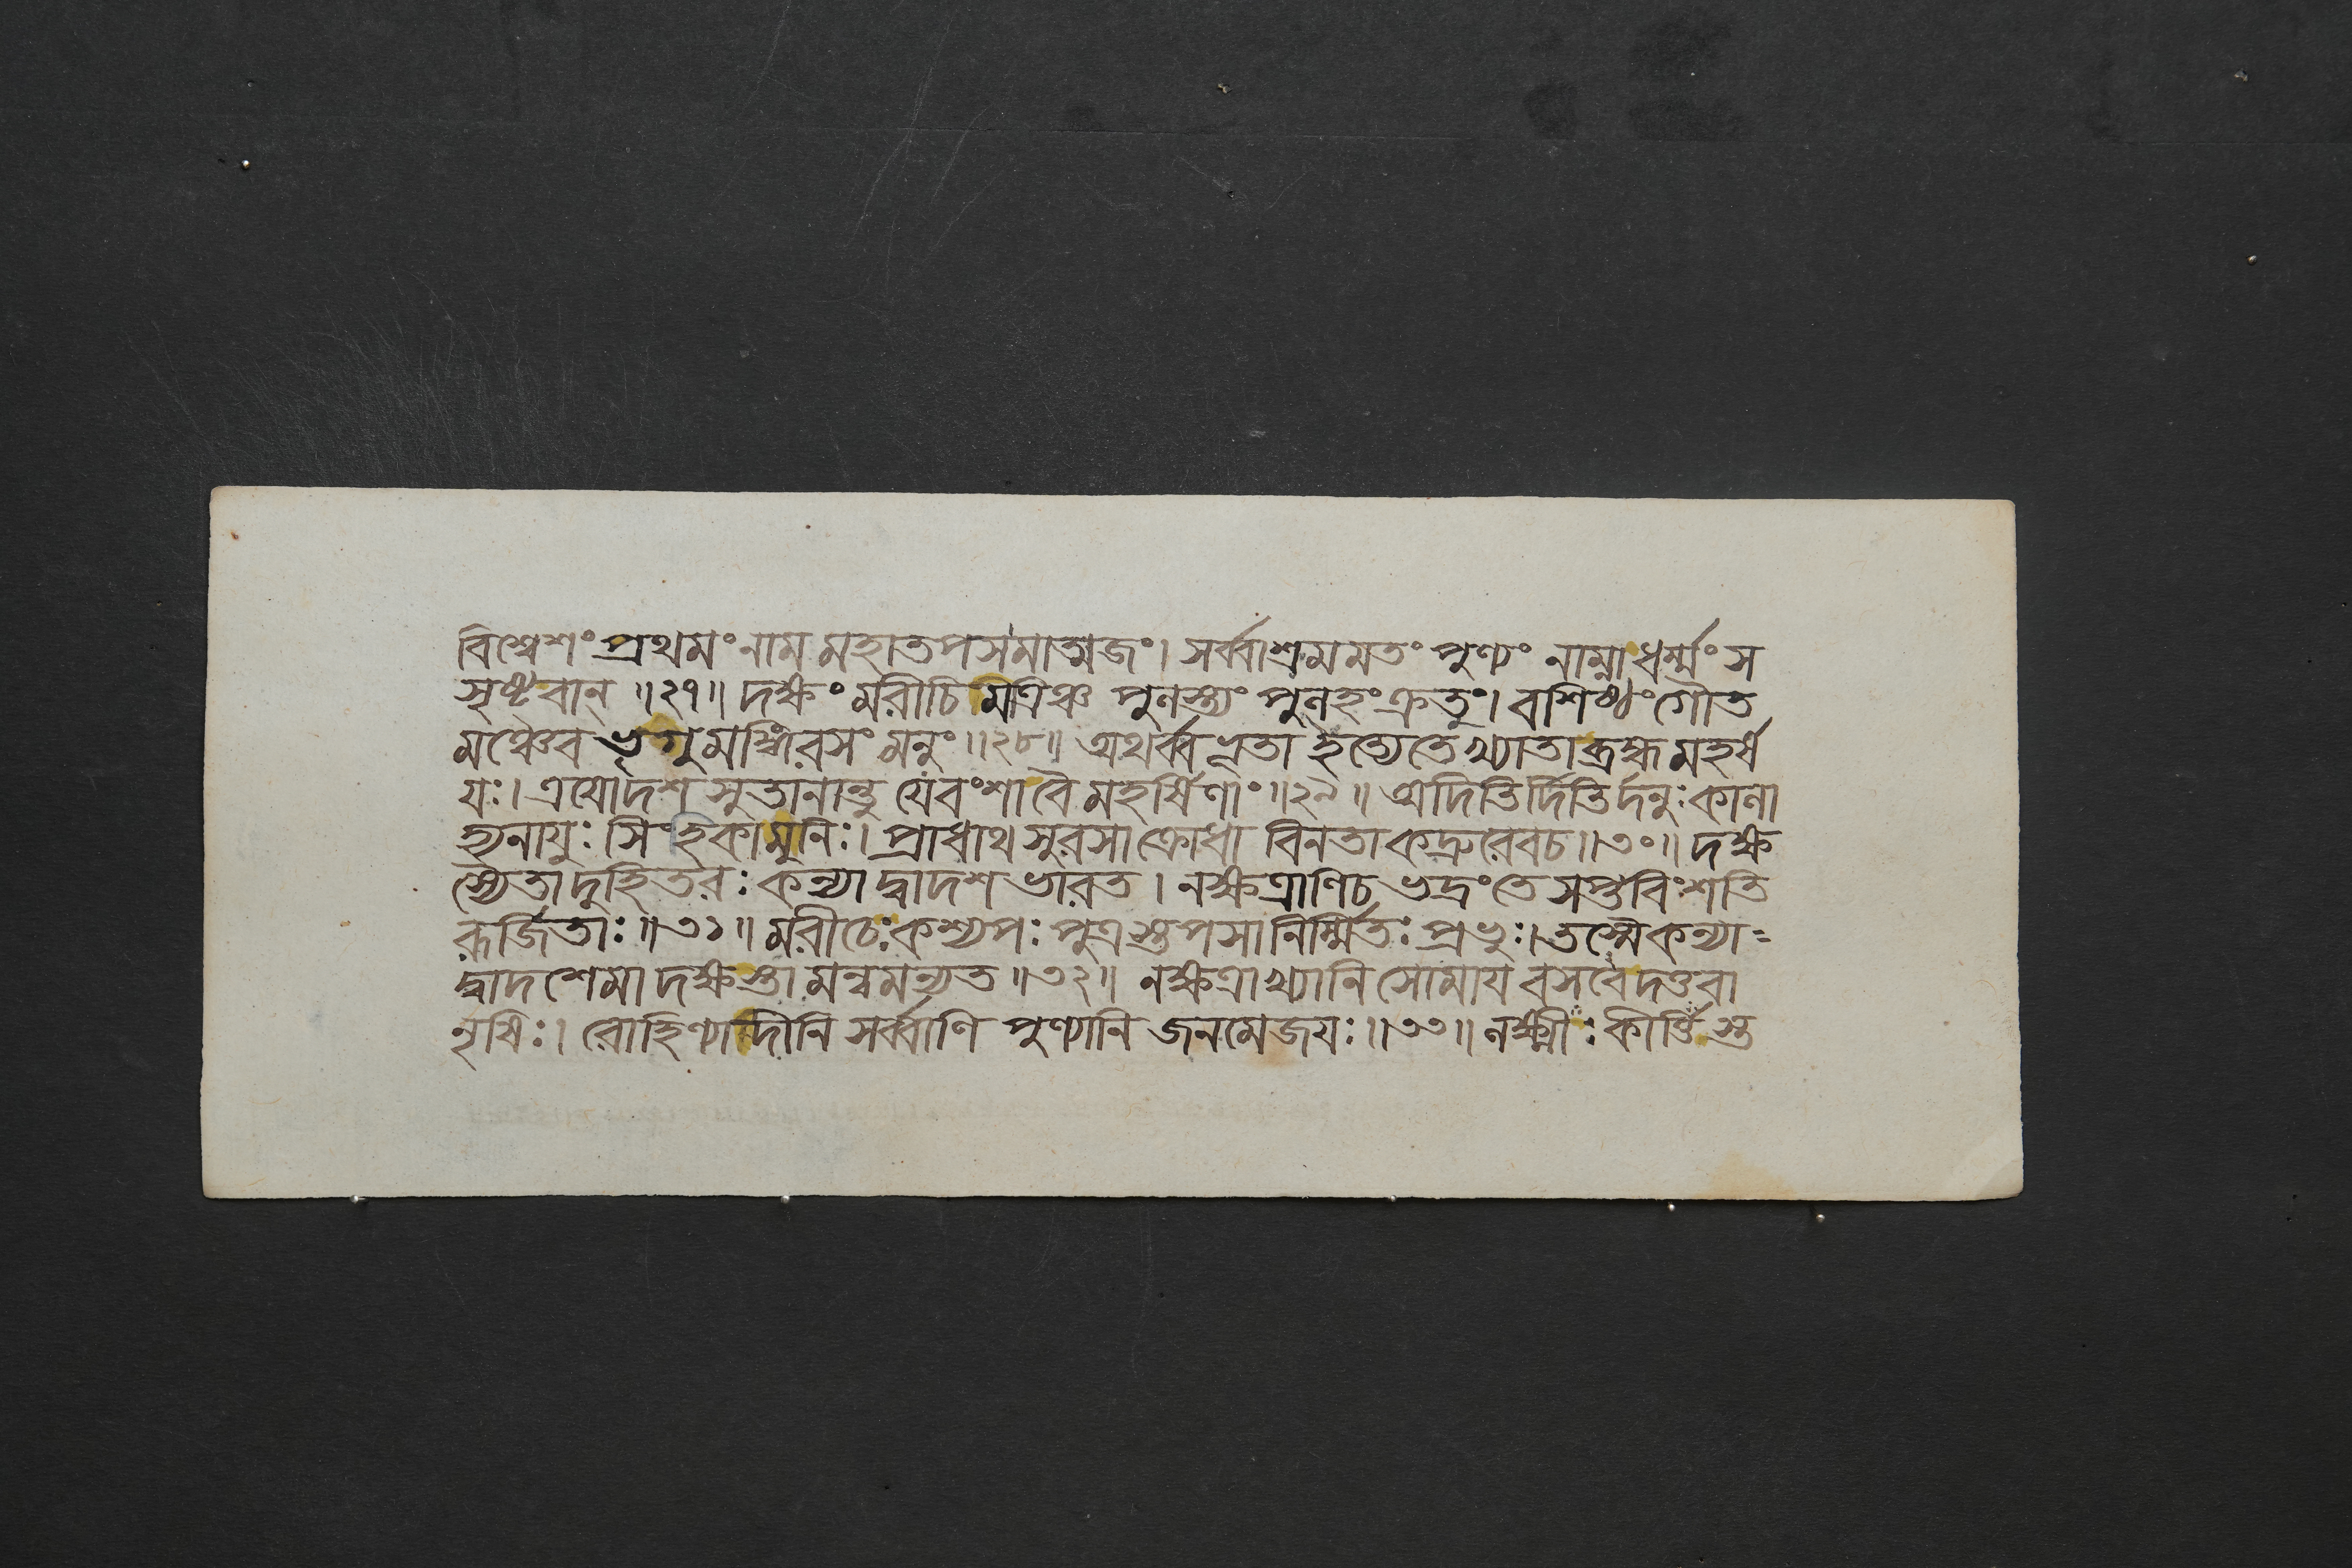 বিশ্বেশং প্রথমং নাম মহাতপসমাত্মজং। সর্ব্বাশ্রমমতং পুণ্যং নাম্না ধর্ম্মং স
সৃষ্টবান্ ॥২৭॥ দক্ষং মরীচিমত্রিঞ্চ পুলস্ত্যং পুলহং ক্রতুং। বশিষ্ঠং গৌত
মঞ্চৈব ভৃগুমঙ্গিরসং মনুং ॥২৮॥ অথর্ব্বভূতা ইত্যেতে খ্যাতা ব্রহ্মমহর্ষ
য়ঃ। ত্রয়োদশ সুতানান্তু যেবংশা বৈ মহর্ষিণাং ॥২৯॥ অদিতির্দিতির্দনুঃ কালা
হ্যনায়ুঃ সিংহিকা মুনিঃ। প্রাধাথ সুরসা ক্রোধা বিনতা কদ্রুরেবচ ॥৩০॥ দক্ষ
স্যেতা দুহিতরঃ কন্যা দ্বাদশ ভারত। নক্ষত্রাণিচ ভদ্রং তে সপ্তবিংশতি
রূর্জিতাঃ ॥৩১॥ মরীচেঃ কশ্যপঃ পুত্রস্তপসা নির্ম্মিতঃ প্রভুঃ। তস্মৈ কন্যা-
দ্বাদশেমা দক্ষস্তা মন্বমন্যত ॥৩২॥ নক্ষত্রাখ্যানি সোমায় বসবে দত্তবা
নৃষিঃ। রোহিণ্যাদীনি সর্ব্বাণি পুণ্যানি জনমেজয়ঃ ॥৩৩॥ লক্ষ্মীঃ কীর্ত্তিস্ত